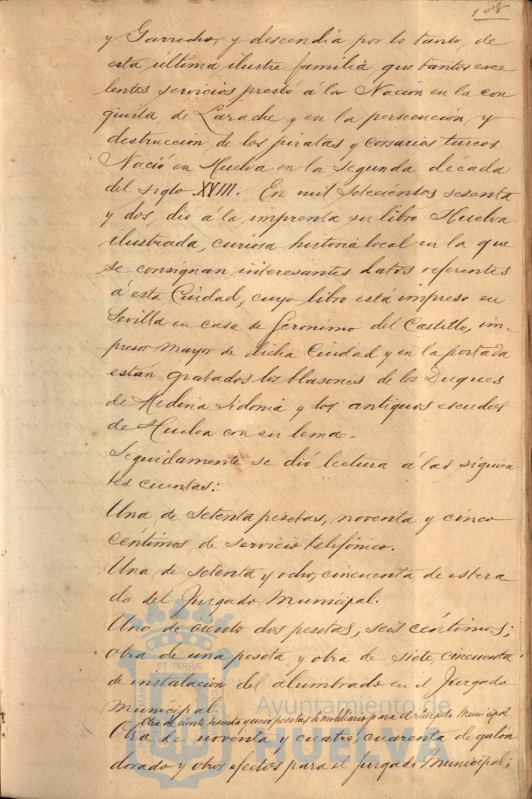 108
y Garrocho, y descendia por lo tanto, de
esta última ilustre familia que tantos exce
lentes servicios prestó á la Nacion en la con
quista de Larache y en la persecucion y
destruccion de los piratas y corsarios turcos.
Nació en Huelva en la segunda década
del siglo XVIII. En mil setecientos sesenta
y dos, dio á la imprenta su libro Huelva
ilustrada, curiosa historia local en la que
se consignan interesantes datos referentes
á esta Ciudad, cuyo libro está impreso en
Sevilla en casa de Geronimo del Castillo, im-
presor mayor de dicha Ciudad y en la portada
están grabados los blasones de los Duques
de Medina Sidonia y los antiguos escudos
de Huelva con su lema.
Seguidamente se dió lectura á las siguien
tes cuentas:
Una de setenta pesetas, noventa y cinco
centimos de servicio telefónico.
Una de setenta y ocho, cincuenta de estera
do del Juzgado Municipal.
Una de ciento dos pesetas, seis centimos;
otra de una peseta y otra de siete, cincuenta
de instalacion del alumbrado en el Juzgado
Municipal.
Otra de ciento sesenta y cinco pesetas de mobiliario para el Juzgado Municipal
Otra de noventa y cuatro, cuarenta de galon
dorado y otros efectos para el Juzgado Municipal;
ET TERRÆ
Ayuntamiento de
HUELVA